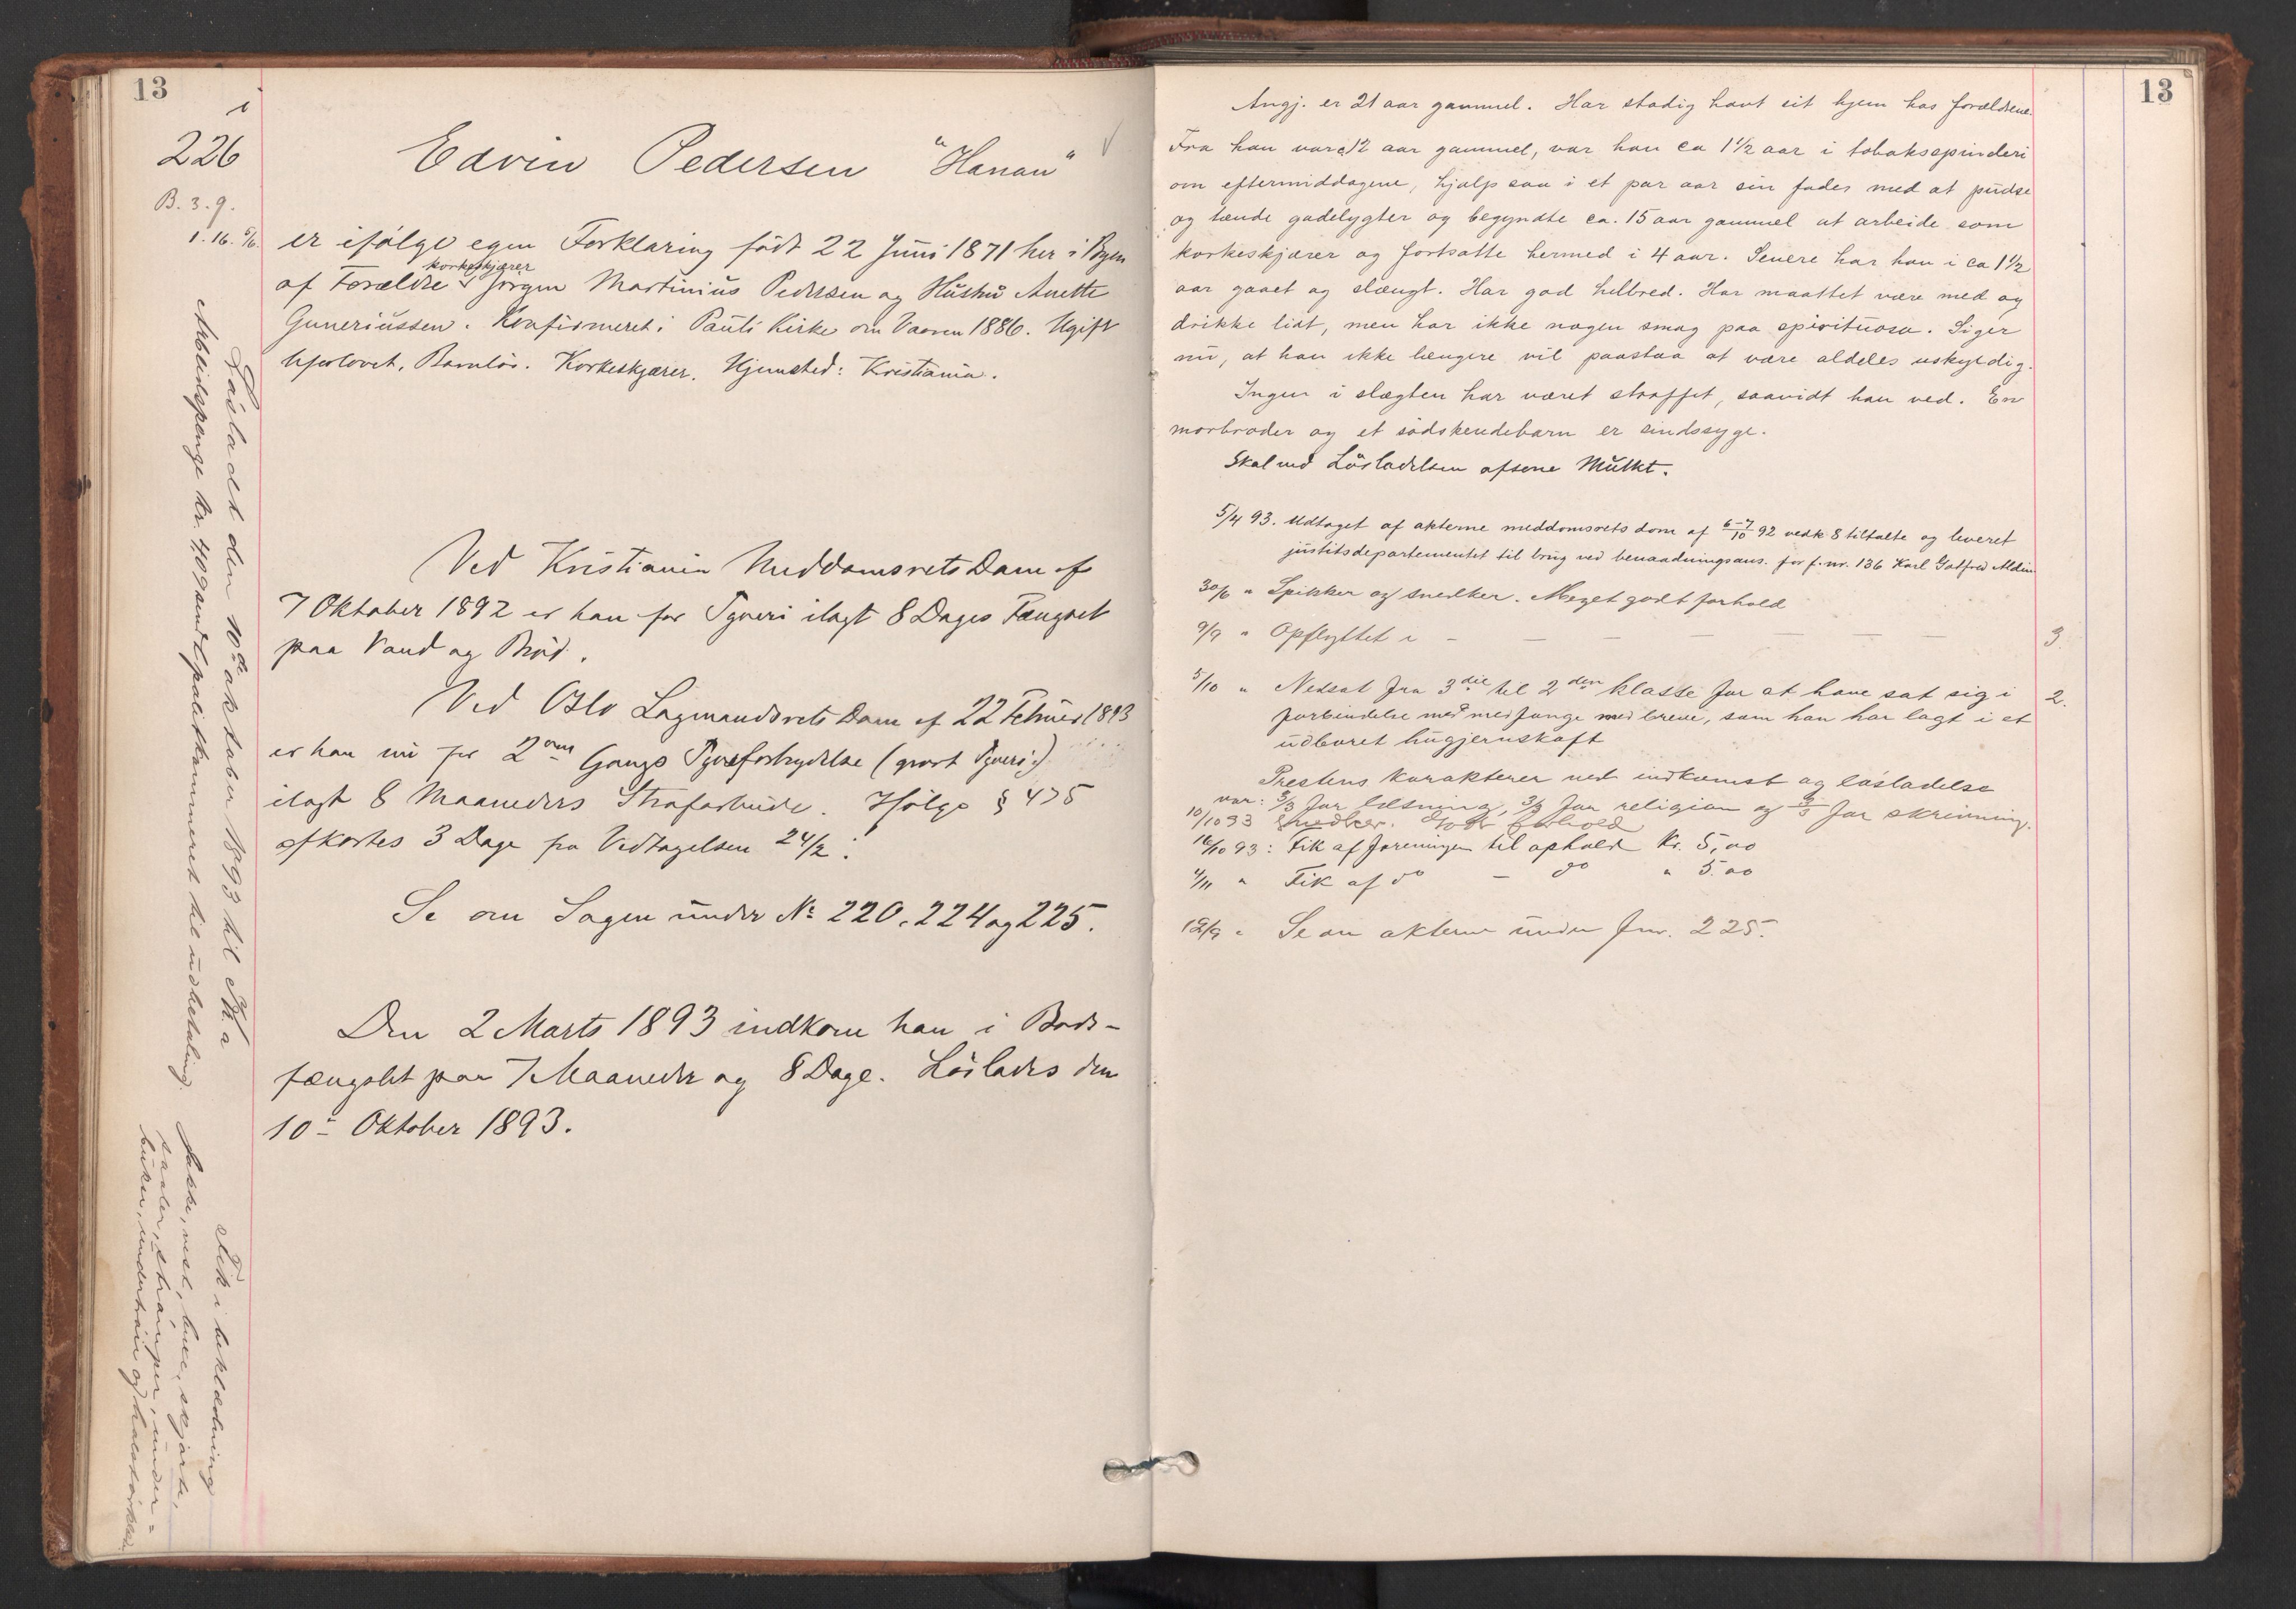 13
226
B. 3. 9.
1. 16. 5/6.
Edvin Pedersen "Hanau"
er ifølge egen Forklaring født 22 Juni 1871 her i Byen
korkeskjærer
af Forældre Jørgen Martinius Pedersen og Hustru Anette
Guneriussen. Konfirmeret i Pauls Kirke om Vaaren 1886. Ugift
Uforlovet, Barnløs. Korkeskjærer. Hjemsted: Kristiania.
Ved Kristiania Meddomsrets Dom af
7 Oktober 1892 er han for Tyveri ilagt 8 Dages Fængsel
paa Vand og Brød.
Ved Oslo Lagmandsrets Dom af 22 Februar 1893
er han nu for 2den Gangs Tyvsforbrydelse (grovt Tyveri)
ilagt 8 Maaneders Strafarbeide. Ifølge § 475
afkortes 3 Dage fra Vedtagelsen 24/2.
Se om Sagen under No 220, 224 og 225.
Den 2 Marts 1893 indkom han i Bods-
fængslet paa 7 Maaneder og 8 Dage. Løslades den
10de Oktober 1893.
Løsladt den 10de oktober 1893 til Kr.a
Arbeidspenge kr. 40 sendt politikammeret til udbetaling.
Fik i beklædning
Jakke, vest, buxe, skjorte,
saaler, strømper, under-
buxer, undertrøie og halstørklæde.
13
Angj. er 21 aar gammel. Har stadig havt sit hjem hos forældrene.
Fra han var ca 12 aar gammel, var han ca 1 1/2 aar i tobakspinderi
om eftermiddagene, hjalp saa i et par aar sin fader med at pudse
og tænde gadelygter og begyndte ca. 15 aar gammel at arbeide som
korkeskjærer og fortsatte hermed i 4 aar. Senere har han i ca 1 1/2
aar gaaet og slængt. Har god helbred. Har maattet være med og
drikke lidt, men har ikke nogen smag paa spirituosa. Siger
nu, at han ikke længere vil paastaa at være aldeles uskyldig.
Ingen i slægten har været straffet, saavidt han ved. En
morbroder og et sødskendebarn er sindssyge.
Skal ved Løsladelsen afsone Mulkt.
5/4 93. Udtaget af akterne meddomsrets dom af 6-7/10 92 vedk 8 tiltalte og leveret
justitsdepartementet til brug ved benaadningsans. for f. nr. 136 Karl Gotfred Aldin
30/6 " Spikker og snedker. Meget godt forhold
9/9 " Opflyttet i - - - - - - 3.
5/10 " Nedsat fra 3die til 2den klasse for at have sat sig i 2.
forbindelse med medfange med breve, som han har lagt i et
udboret hugjernskaft
Prestens karakterer ved indkomst og løsladelse
var: 3/3 for læsning, 3/3 for religion og 3/3 for skrivning.
10/10 93 Snedker. Godt forhold
16/10 93: Fik af foreningen til ophold Kr. 5,00
4/11 " Fik af do - do " 5.00
12/9 " Se om akterne under fnr. 225.